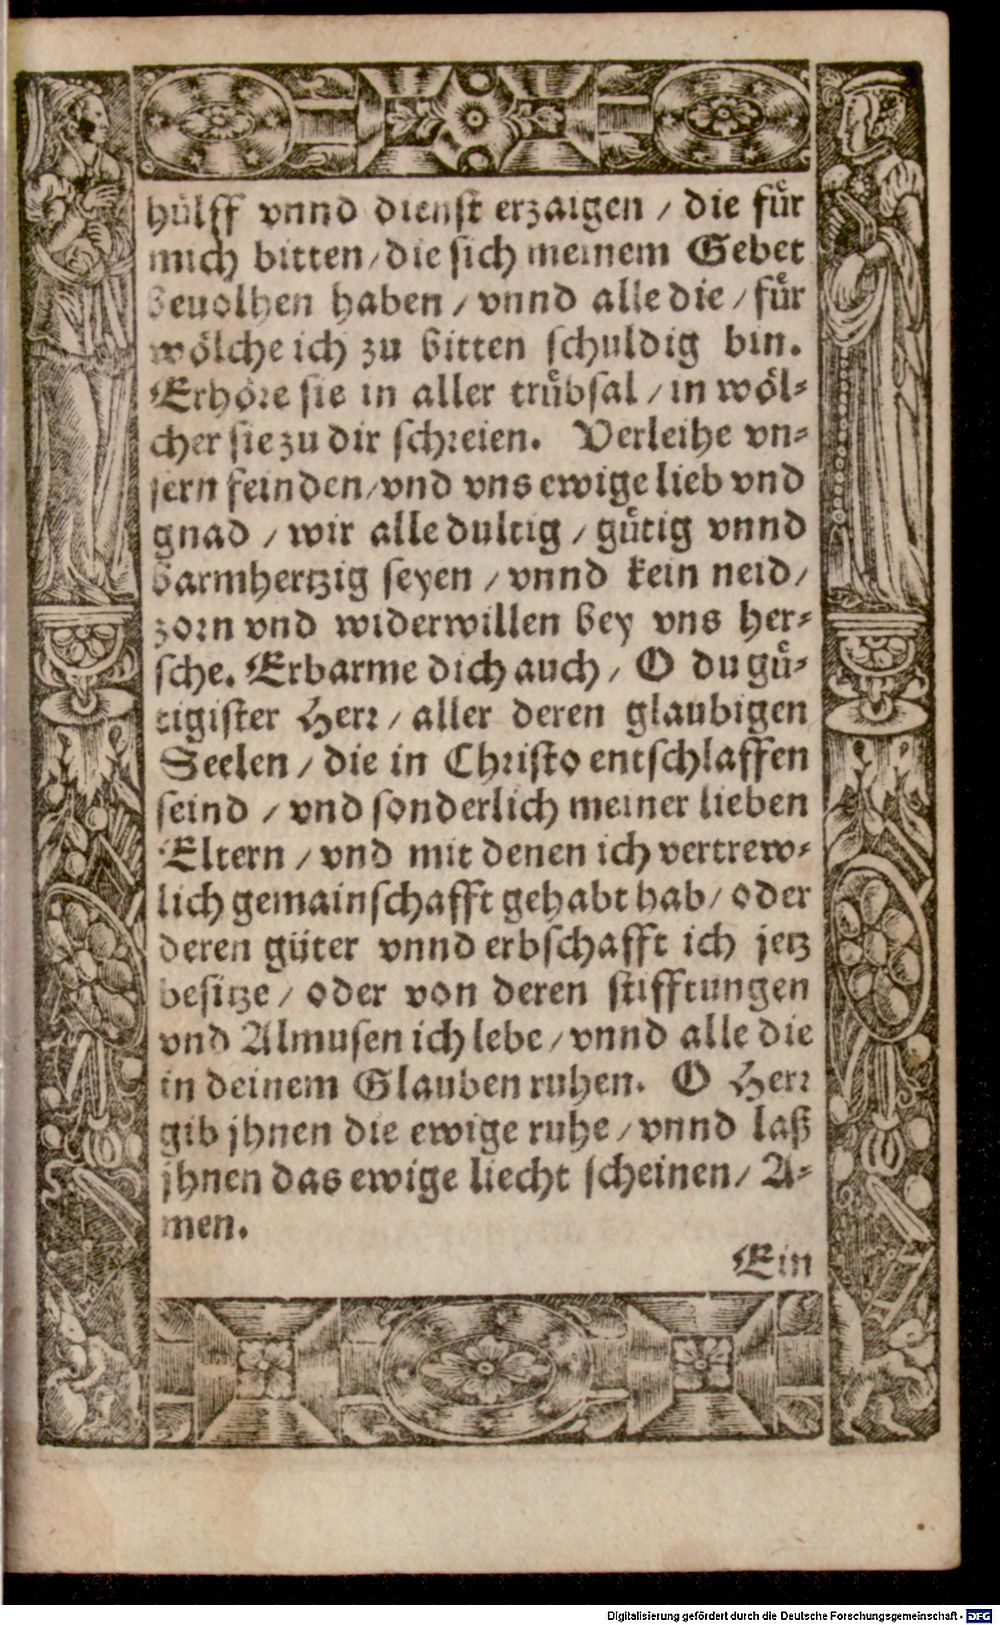 hülff vnnd dienst erzaigen / die fuͤr
mich bitten / die sich meinem Gebet
beuolhen haben / vnnd alle die / fuͤr
woͤlche ich zu bitten schuldig bin.
Erhoͤre sie in aller truͤbsal / in woͤl⸗
cher sie zu dir schreien. Verleihe vn⸗
sern feinden / vnd vns ewige lieb vnd
gnad / wir alle dultig / guͤtig vnnd
barmhertzig seyen / vnnd kein neid /
zorn vnd widerwillen bey vns her⸗
sche. Erbarme dich auch / O du guͤ⸗
tigister Herr / aller deren glaubigen
Seelen / die in Christo entschlaffen
seind / vnd sonderlich meiner lieben
Eltern / vnd mit denen ich vertrew⸗
lich gemainschafft gehabt hab / oder
deren güter vnnd erbschafft ich jetz
besitze / oder von deren stifftungen
vnd Almusen ich lebe / vnnd alle die
in deinem Glauben ruhen. O Herr
gib jhnen die ewige ruhe / vnnd laß
jhnen das ewige liecht scheinen / A⸗
men.
Ein
Digitalisierung gefördert durch die Deutsche Forschungsgemeinschaft - DFG